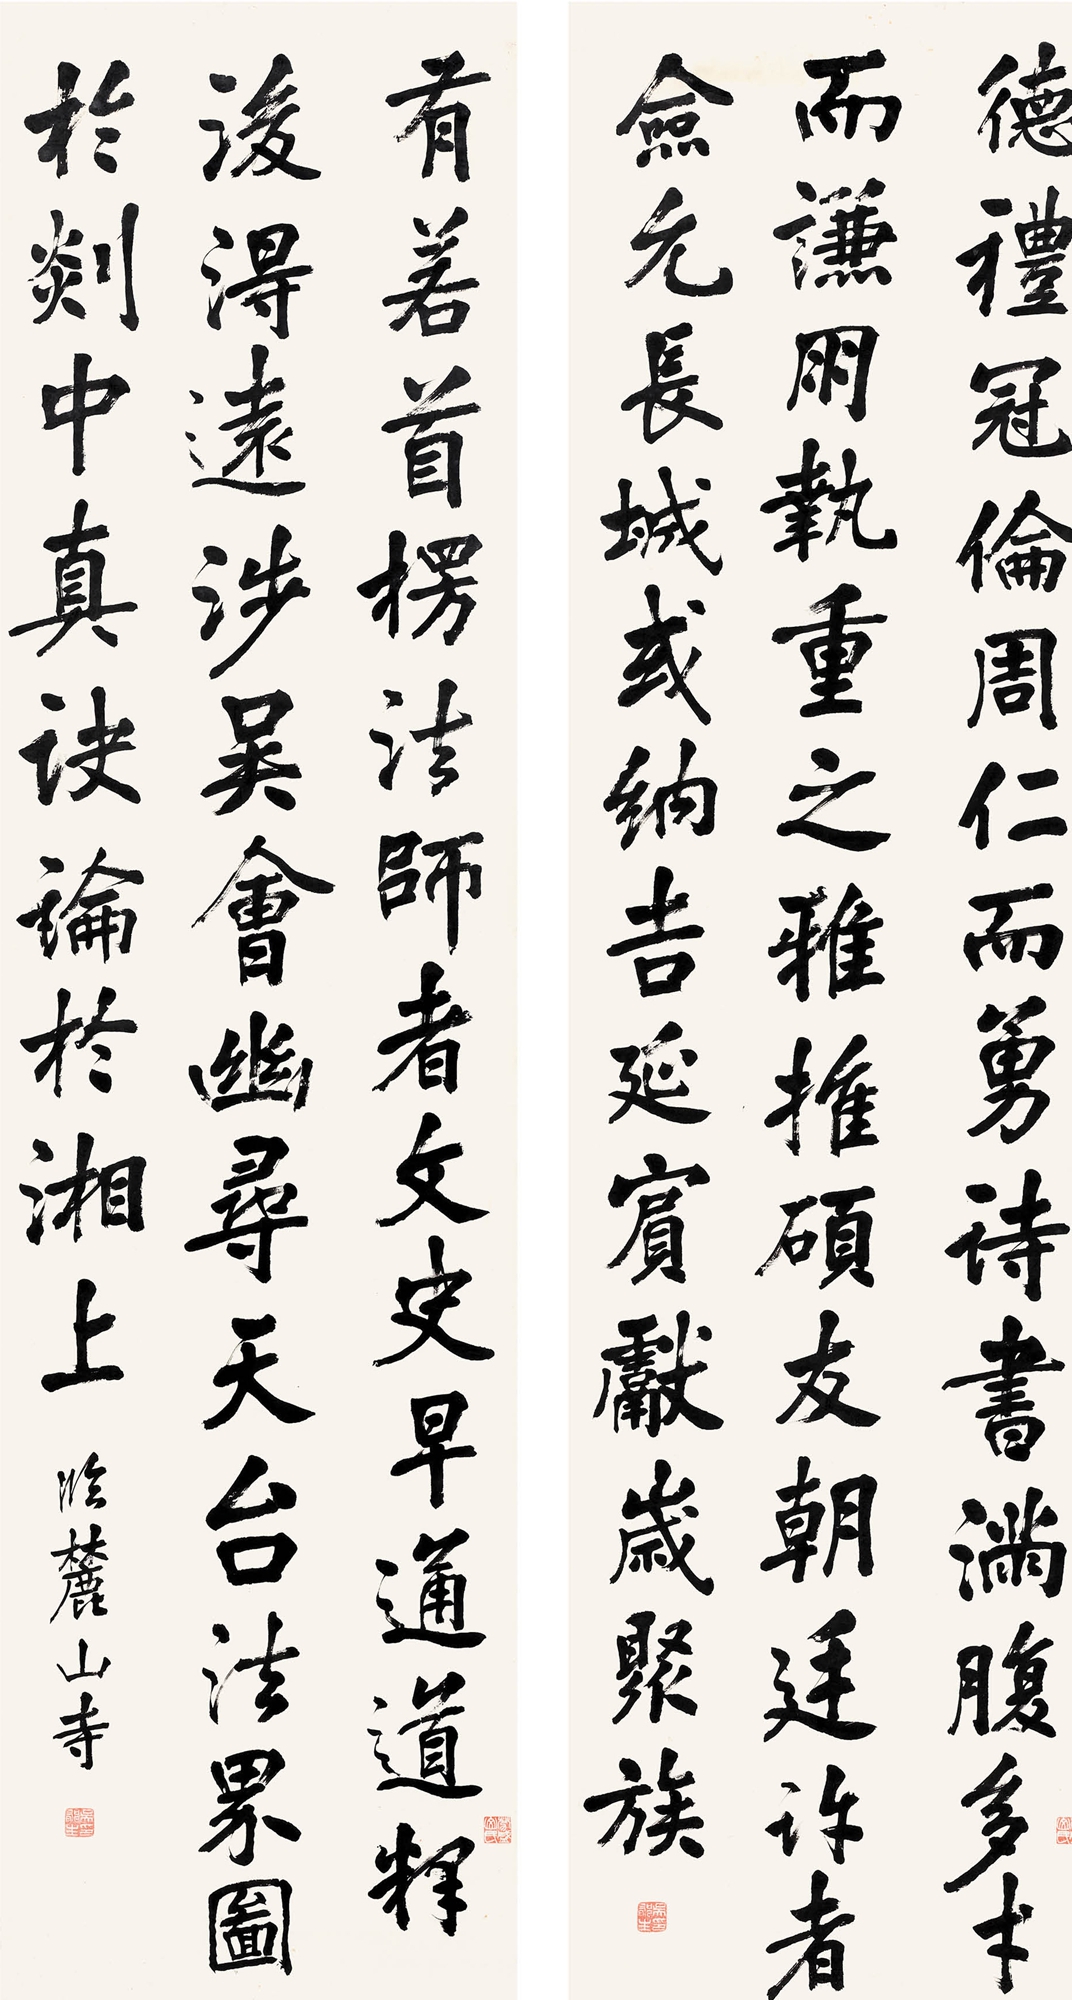 德禮冠倫周仁而勇詩書滿腹多才
而謙朋執重之雅推碩友朝廷許者
僉允長城或納吉延賓獻歲聚族
有若首楞法師者文史早通道釋
後得遠涉吳會幽尋天台法界圖
於剡中真訣論於湘上
臨麓山寺